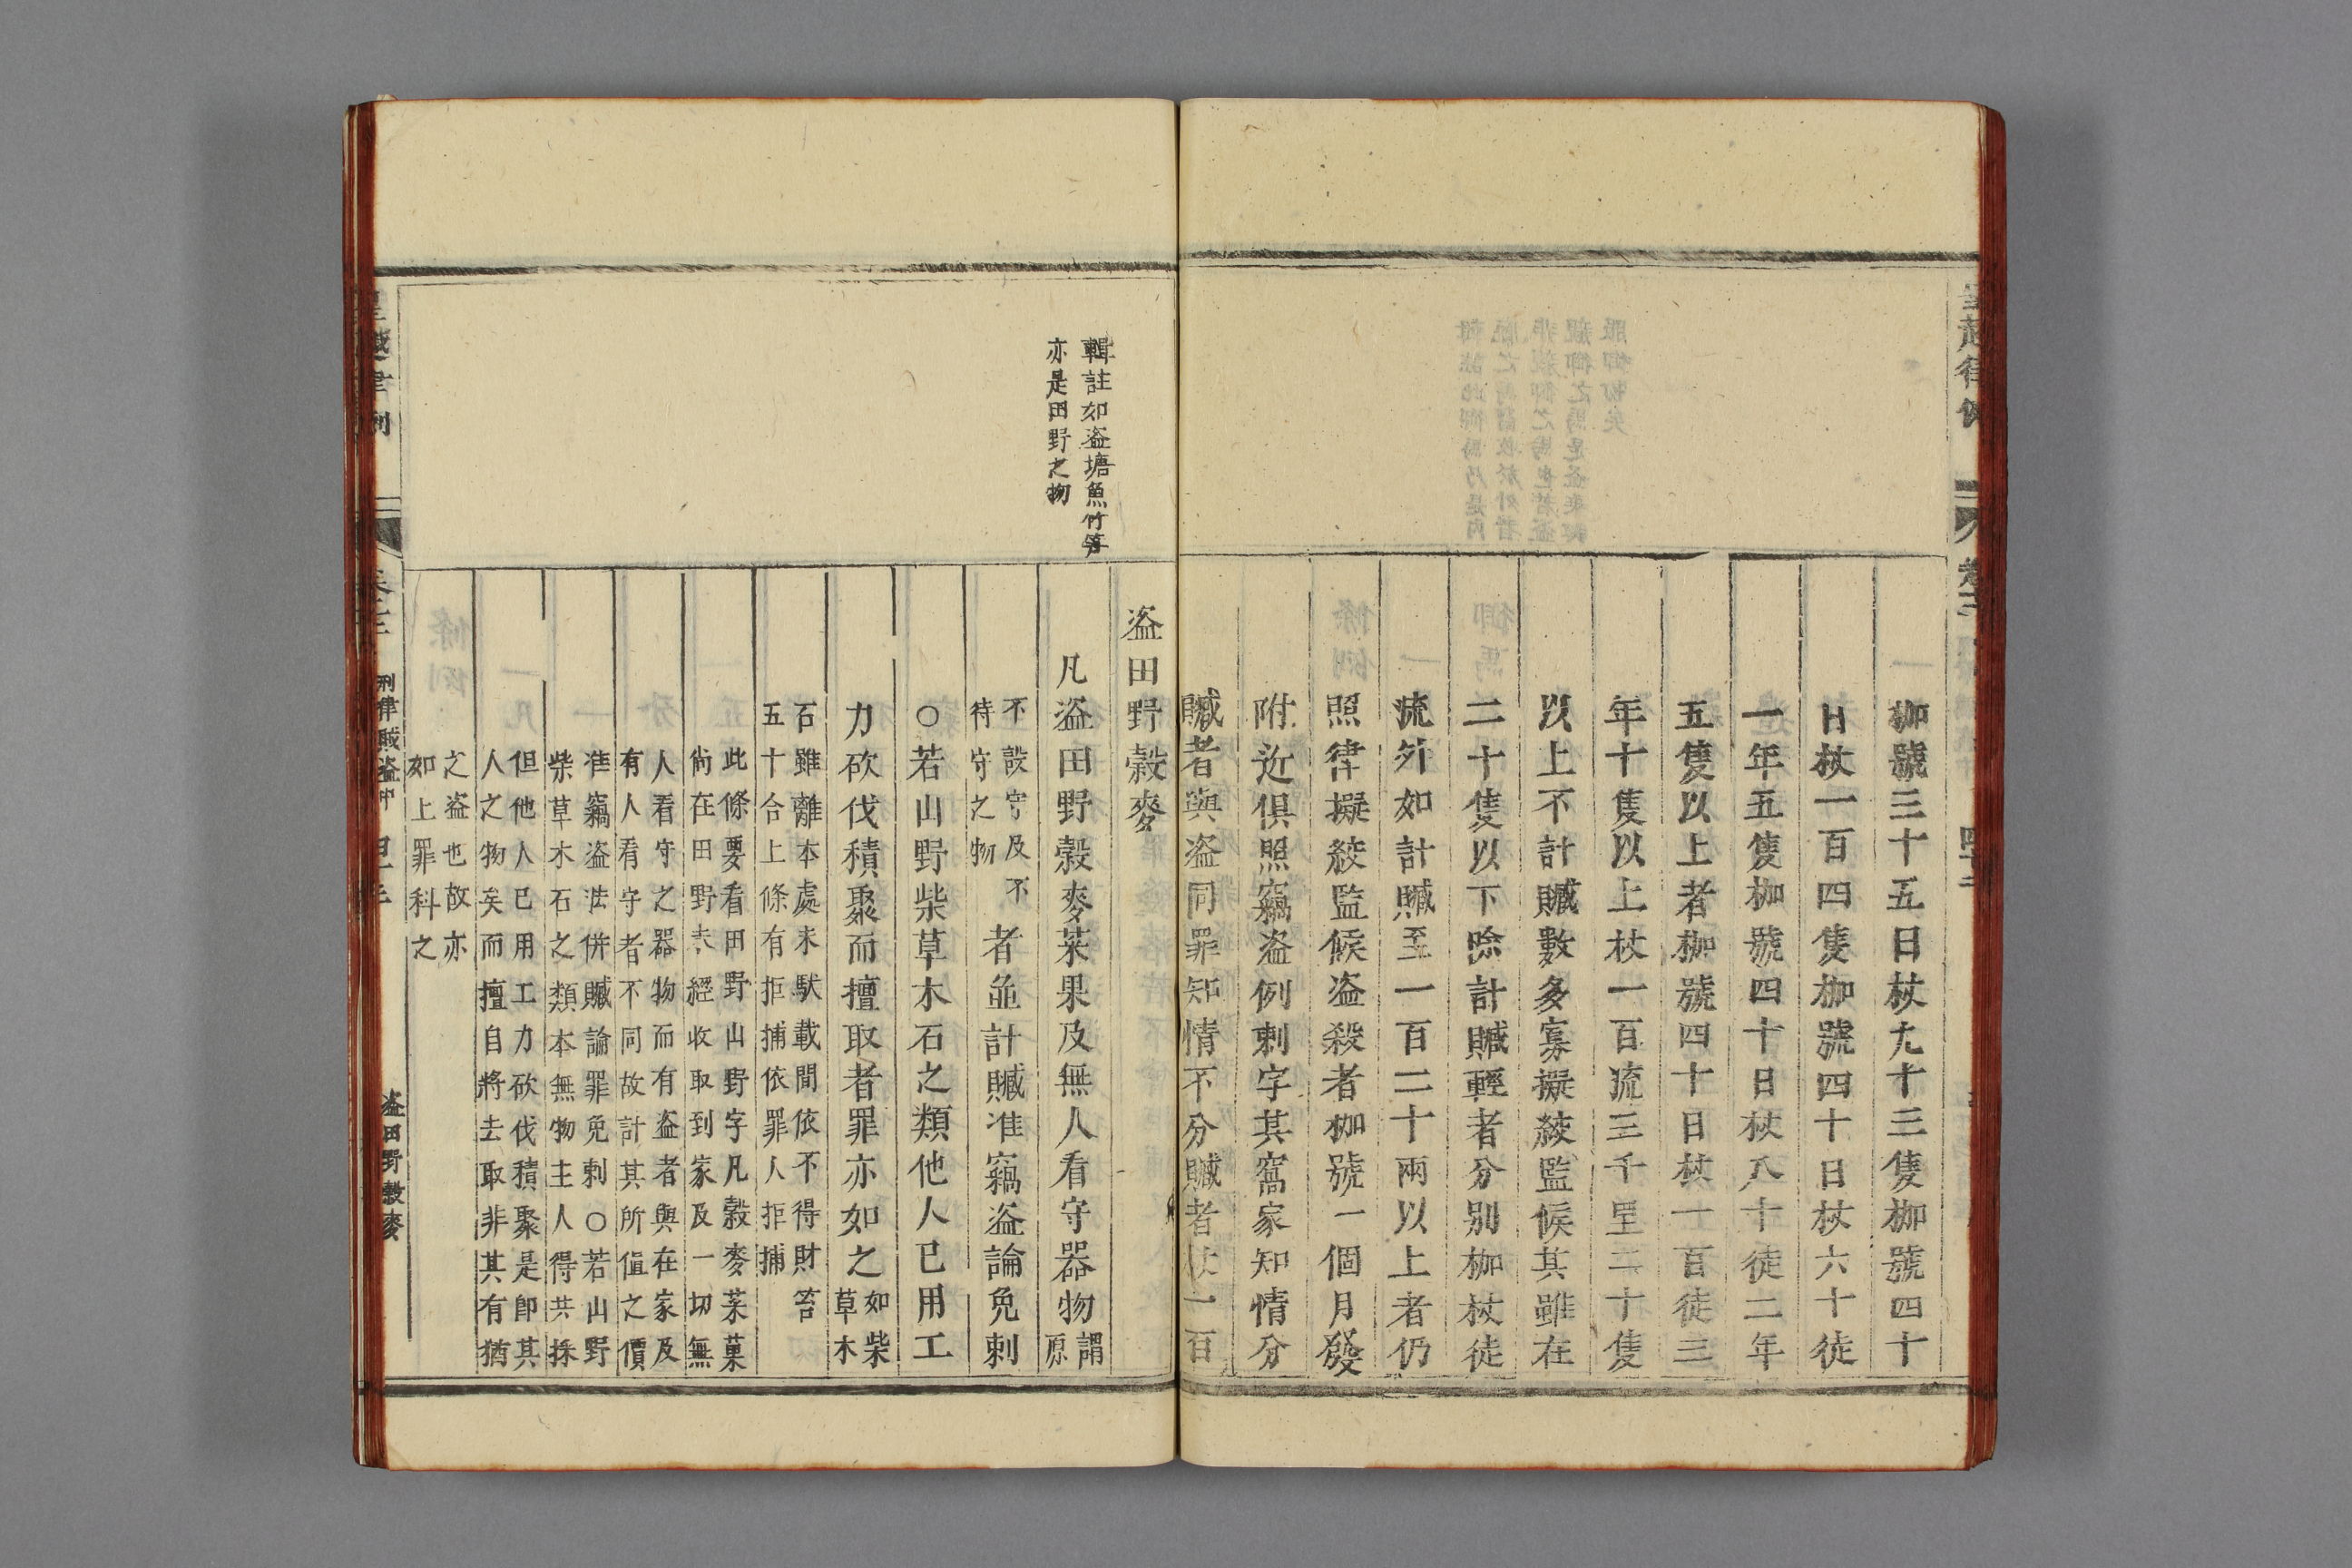 枷號三十五日杖九十三隻枷號四十
日杖一百四隻枷號四十日杖六十徒
一年五隻枷號四十日杖八十徒二年
五隻以上者枷號四十日杖一百徒三
年十隻以上杖一百流三千里二十隻
以上不計贓數多寡擬絞監候其雖在
二十隻以下除計贓輕者分別枷杖徒
流外如計贓至一百二十兩以上者仍
照律擬絞監候盗殺者枷號一個月發
附近俱照竊盗例刺字其窩家知情分
贓者與盗同罪知情不分贓者杖一百
輯註如盗塘魚竹筭
亦是田野之物
盗田野穀麥
凡盗田野穀麥菜果及無人看守器物謂原
不設守及不
待守之物
者並計贓准竊盗論免刺
○若山野柴草木石之類他人已用工
力砍伐積聚而擅取者罪亦如之如柴
草木
石雖離本處未馱載間依不得財笞
五十合上條有拒捕依罪人拒捕
此條要看田野山野字凡穀麥菜菓
尚在田野未經收取到家及一切無
人看守之器物而有盗者與在家及
有人看守者不同故計其所值之價
准竊盗法併贓論罪免刺○若山野
柴草木石之類本無物主人得共採
但他人已用工力砍伐積聚是卽其
人之物矣而擅自將去取非其有猶
之盗也故亦
如上罪科之
刑律賊盗中
盗田野穀麥